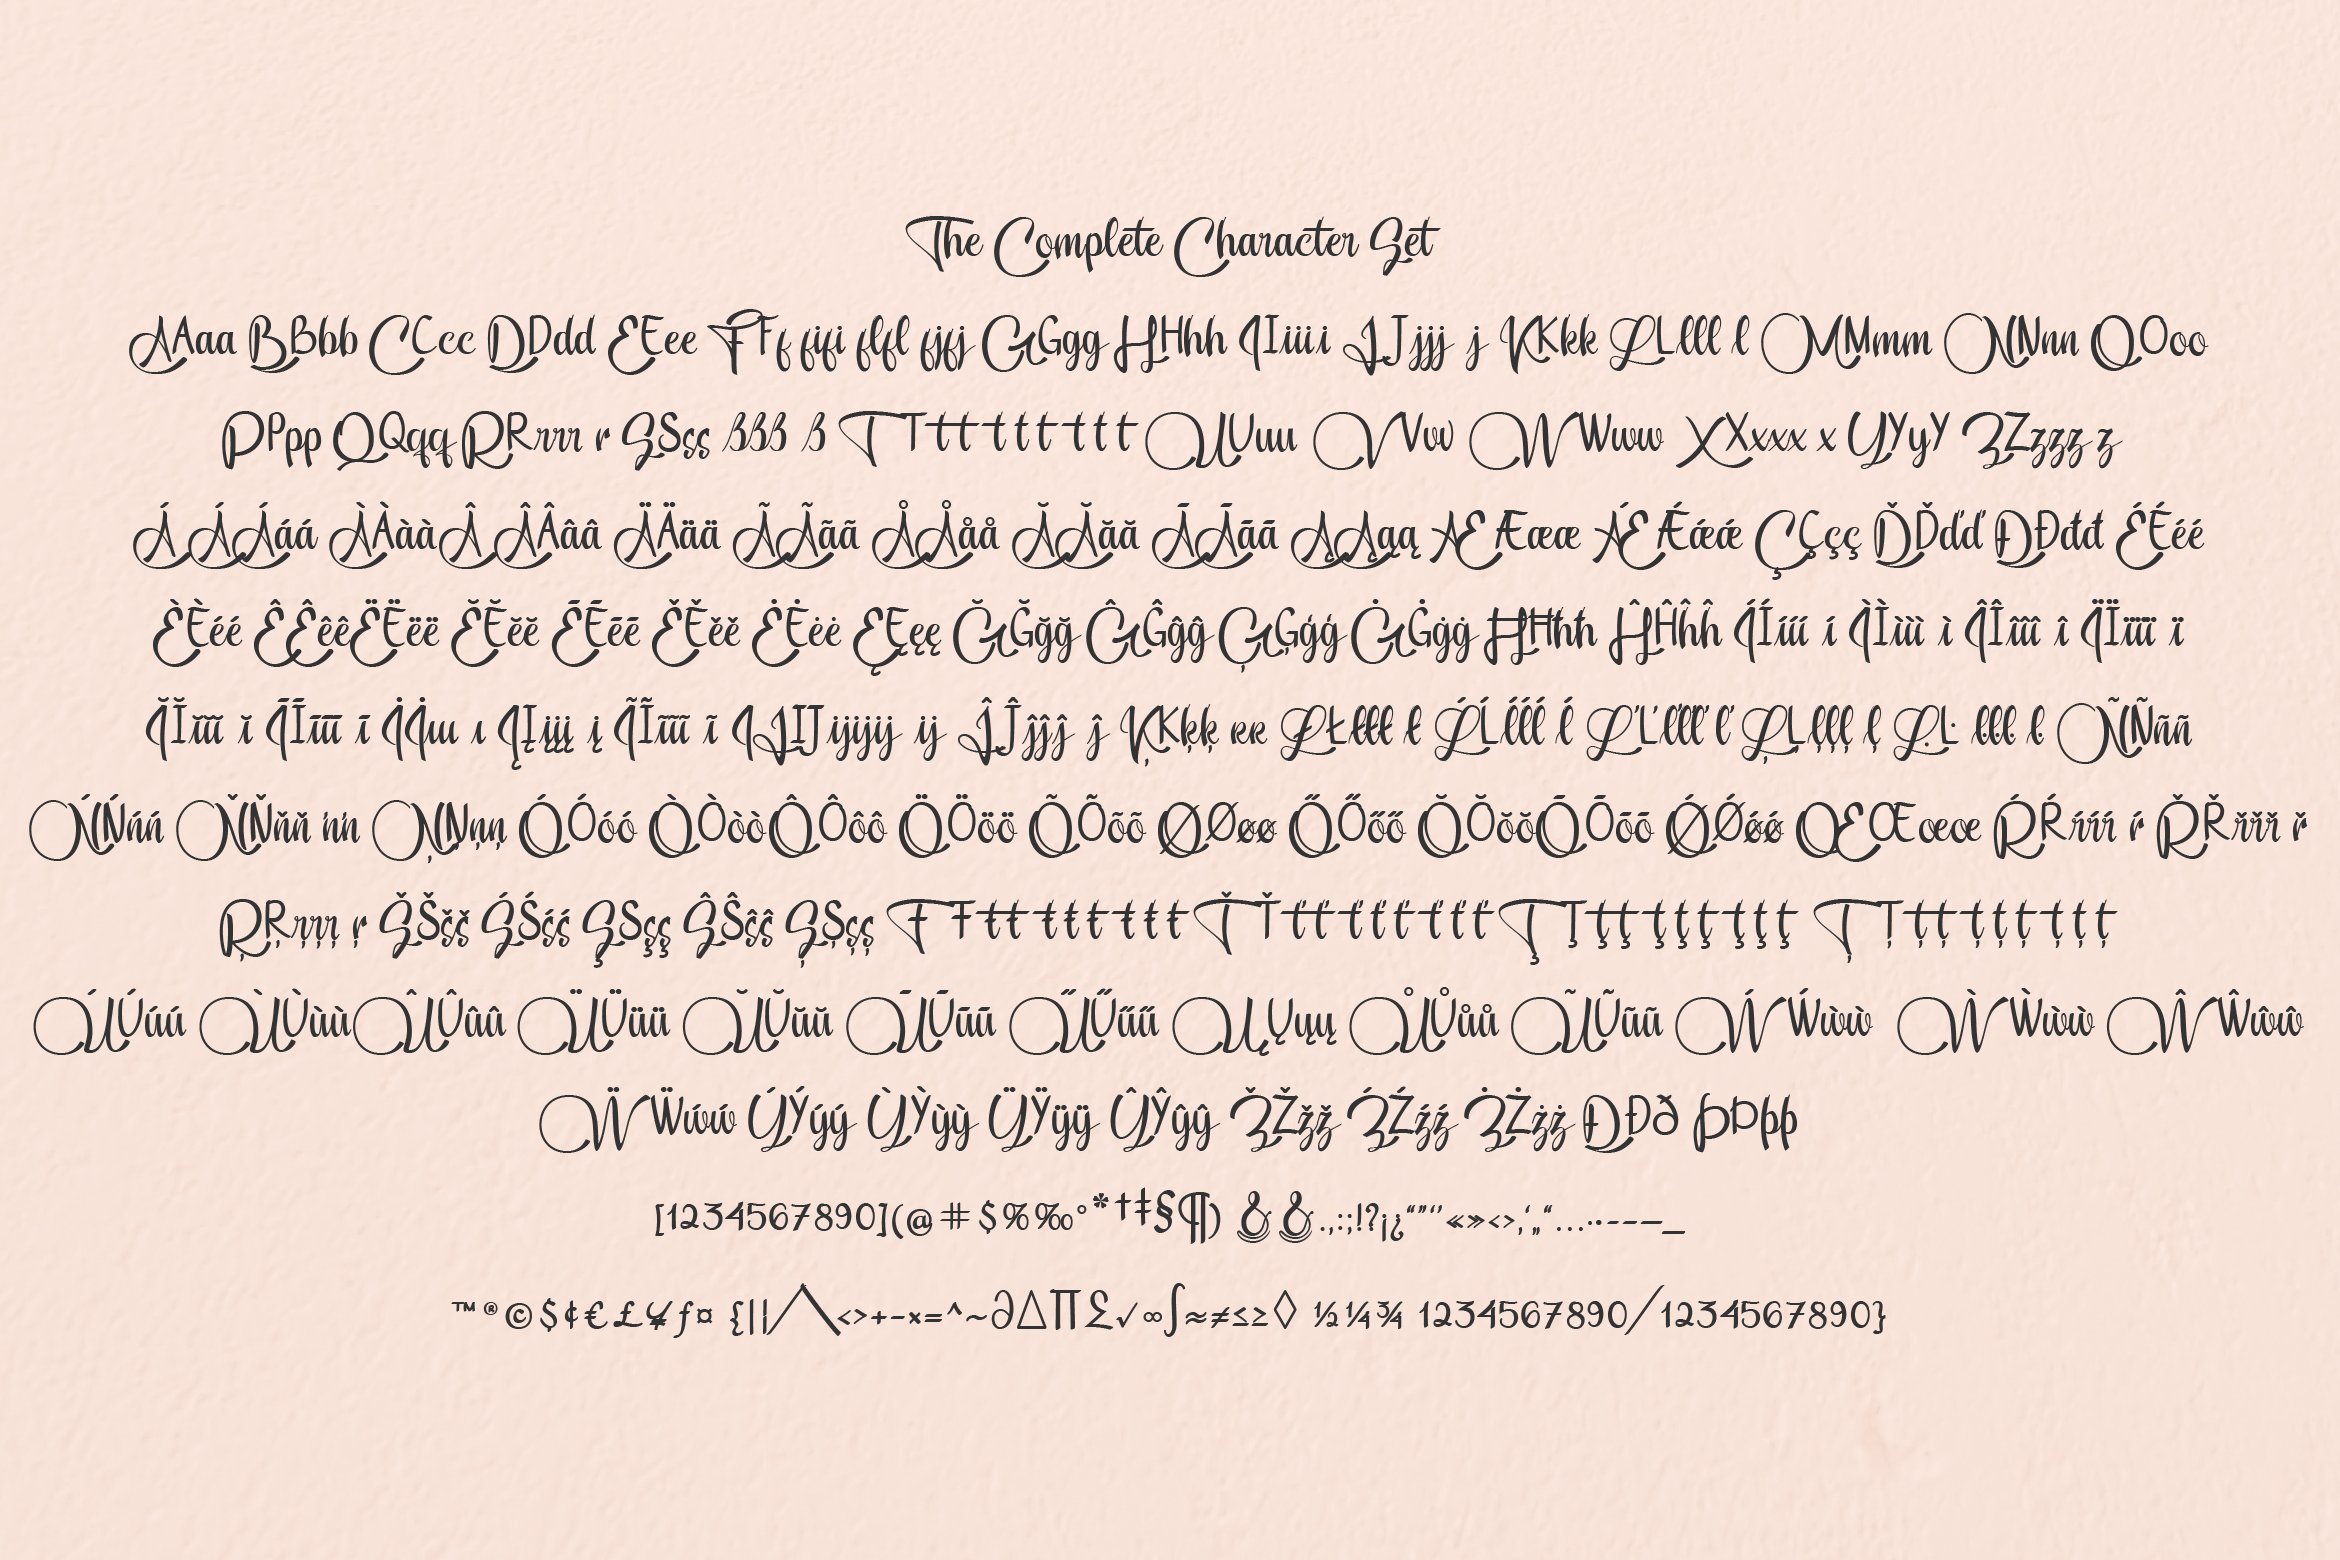 The Complete Character Set
AAaa BBbb CCcc DDdd EEee FFf fifi flfl fjfj GGgg HHhh IIiiii JJjjj j KKkk LLlll l MMmm NNnn OOoo
PPpp QQqq RRrrr r SSss ßßß ß TTttttttt UUuu VVvv WWww XXxxx x YYyy ZZzzz z
Á ÁÁáá ÀÀàà Â ÂÂââ ÄÄää ÃÃãã ÅÅåå ĂĂăă ĀĀāā ĄĄąą ÆÆææ ǼǼǽǽ ÇÇçç ĎĎďď ĐĐđđ ÉÉéé
ÈÈéé ÊÊêê ËËëë ĔĔĕĕ ĒĒēē ĚĚěě ĖĖėė ĘĘęę ĞĞğğ ĜĜĝĝ ĢĢģģ ĠĠġġ ĦĦħħ ĤĤĥĥ ÍÍííí í ÌÌììì ì ÎÎîîî î ÏÏïïï ï
ĬĬĭĭĭ ĭ ĪĪīīī ī İİııı ı ĮĮįįį į ĨĨĩĩĩ ĩ IJIJijijij ij ĴĴĵĵĵ ĵ ĶĶķķ ĸĸ ŁŁłłł ł ĹĹĺĺĺ ĺ ĽĽľľľ ľ ĻĻļļļ ļ ĿĿ ŀŀŀ ŀ ÑÑññ
ŃŃńń ŇŇňň ŉŉ ŅŅņņ ÓÓóó ÒÒòò ÔÔôô ÖÖöö ÕÕõõ ØØøø ŐŐőő ŎŎŏŏ ŌŌōō ǾǾǿǿ ŒŒœœ ŔŔŕŕŕ ŕ ŘŘřřř ř
ŖŖŗŗŗ ŗ ŠŠšš ŚŚśś ŞSşş ŜŜŝŝ ȘȘșș ŦŦŧŧŧŧŧŧŧŧ ŤŤťťťťťťťť ŢŢţţţţţţţţ ȚȚțțțțțțțț
ÚÚúú ÙÙùù ÛÛûû ÜÜüü ŬŬŭŭ ŪŪūū ŰŰűű ŲŲųų ŮŮůů ŨŨũũ ẂẂẁẁ ẀẀẁẁ ŴŴŵŵ
ẄẄẃẃ ÝÝýý ỲỲỳỳ ŸŸÿÿ ŶŶŷŷ ŽŽžž ŹŹźź ŻŻżż ÐÐð ÞÞþþ
[1234567890](@#$%‰°*†‡§¶) &&.,:;!?¡¿“”‘’«»<>,‘„“…·•-–—_
™®©$¢€£¥ƒ¤ {||¦/\<>+−×=^~∂∆∏£✓∞∫≈≠≤≥◊ ½¼¾ 1234567890/1234567890}